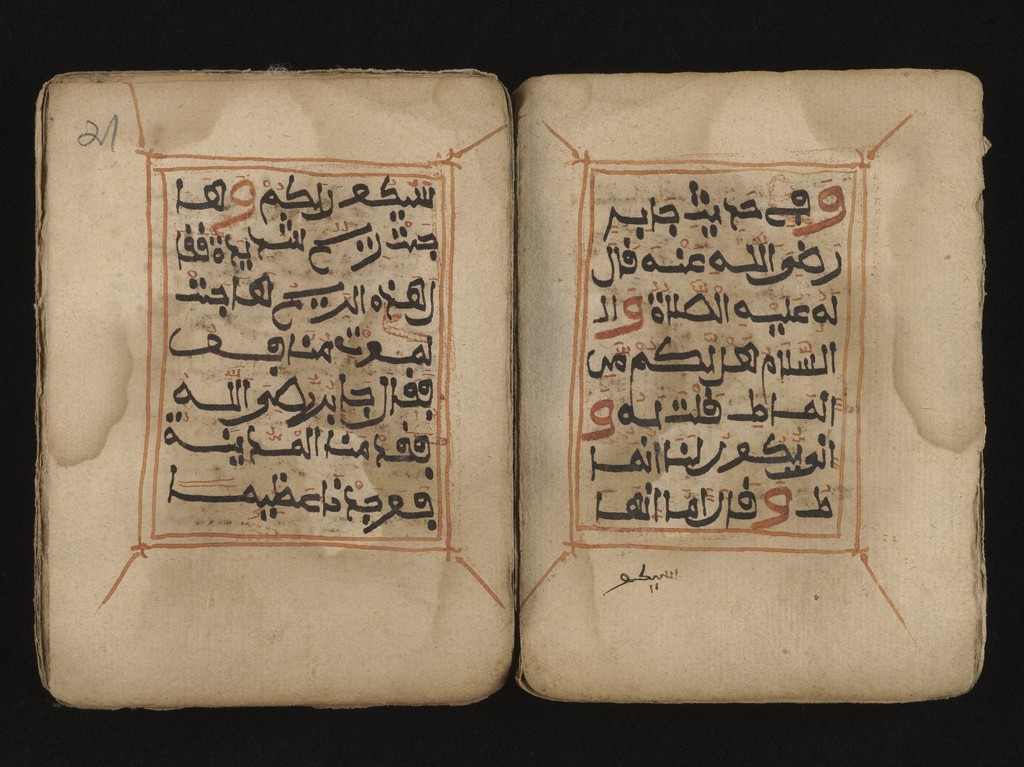 وفي حديث جابر
رضي الله عنه قال
له عليه الصلاة وال
السلام هل لكم من
انماط قلت له و
انى يكون لنا انما
ط وقال اما انها
سيكو
21
سيكون لكم ولها
جت ريح شديدة فقا
ل هذه الريح هاجت
لموت منافق
فقال جابر رضي الله
فقدمنا المدينة
فوجدنا عظيما